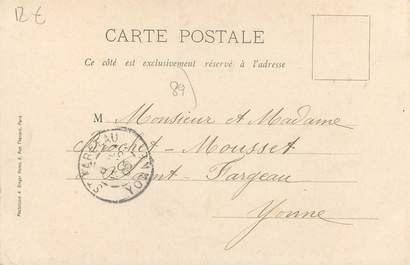 12 €
CARTE POSTALE
Ce côté est exclusivement réservé à l'adresse
89
M Monsieur et Madame
Brochet-Mousset
Saint-Fargeau
Yonne
ST FARGEAU
YONNE